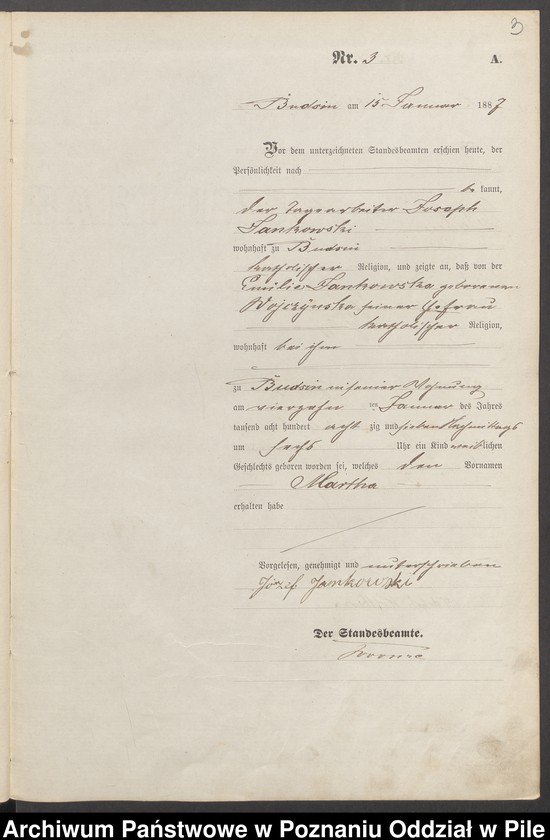 3
Nr. 3 A.
Budsin am 15 Januar 1887
Vor dem unterzeichneten Standesbeamten erschien heute, der
Persönlichkeit nach
be kannt,
der Tagearbeiter Joseph
Jankowski
wohnhaft zu Budsin
katholischer Religion, und zeigte an, daß von der
Emilie Jankowska geborenen
Wojczynska seiner Ehefrau
katholischer Religion,
wohnhaft bei ihm
zu Budsin in seiner Wohnung
am vierzehn ten Januar des Jahres
tausend acht hundert acht zig und sieben Nachmittags
um sechs Uhr ein Kind weiblichen
Geschlechts geboren worden sei, welches den Vornamen
Martha
erhalten habe
Vorgelesen, genehmigt und unterschrieben
Józef Jankowski
Der Standesbeamte.
Archiwum Państwowe w Poznaniu Oddział w Pile